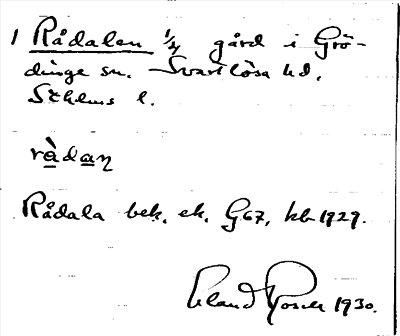 1 Rådalen 1/4 gård i Grö-
dinge sn. Svartlösa hd.
Sthlms l.
rådaɳ
Rådala bek. ek. G67, kb 1929.
Erland Rosell 1930.